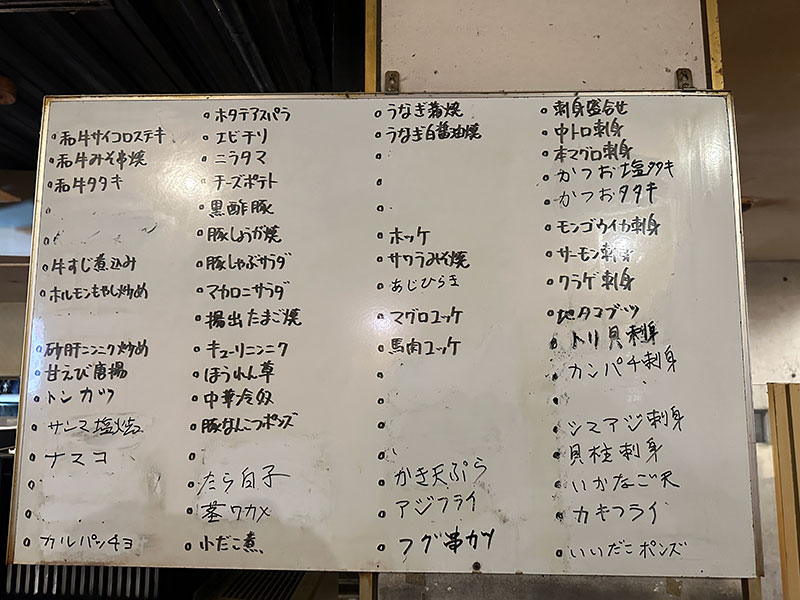 和牛サイコロステキ
和牛みそ串焼
和牛タタキ
牛すじ煮込み
ホルモンもやし炒め
砂肝ニンニク炒め
甘えび唐揚
トンカツ
サンマ塩焼
ナマコ
カルパッチョ
ホタテアスパラ
エビチリ
ニラタマ
チーズポテト
黒酢豚
豚しょうが焼
豚しゃぶサラダ
マカロニサラダ
揚出たまご焼
キューリニンニク
ほうれん草
中華冷奴
豚なんこつポンズ
たら白子
茎ワカメ
小だこ煮
うなぎ蒲焼
うなぎ白醤油焼
ホッケ
サワラみそ焼
あじひらき
マグロユッケ
馬肉ユッケ
かき天ぷら
アジフライ
フグ串カツ
刺身盛合せ
中トロ刺身
本マグロ刺身
かつお塩タタキ
かつおタタキ
モンゴウイカ刺身
サーモン刺身
クラゲ刺身
地タコブツ
トリ貝刺身
カンパチ刺身
シマアジ刺身
貝柱刺身
いかなご天
カキフライ
いいだこポンズ